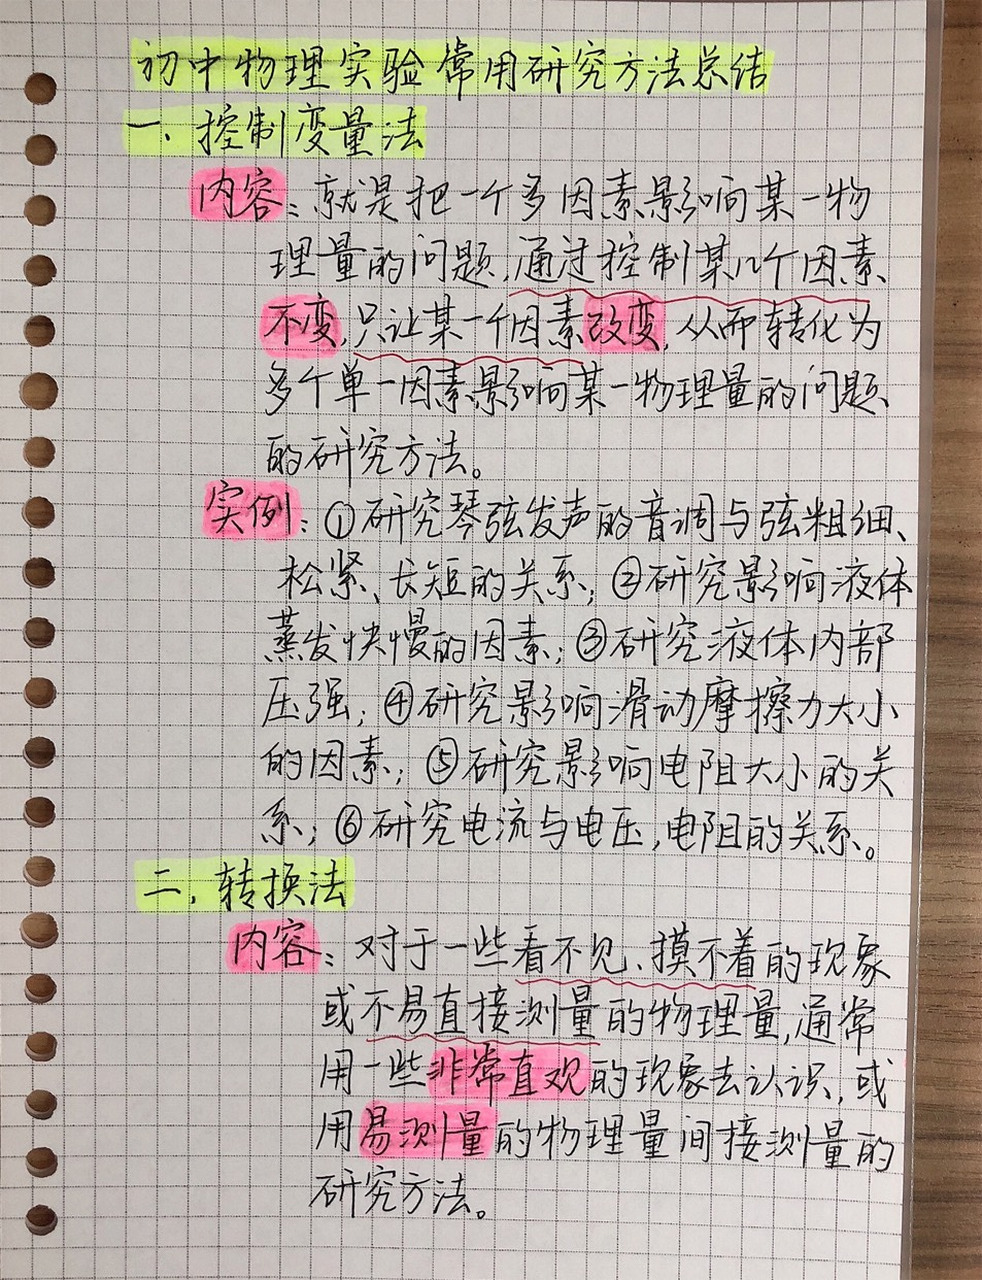 初中物理实验常用研究方法总结
一、控制变量法
内容：就是把一个多因素影响某一物
理量的问题，通过控制某几个因素
不变，只让某一个因素改变，从而转化为
多个单一因素影响某一物理量的问题
的研究方法。
实例：①研究琴弦发声的音调与弦粗细、
松紧、长短的关系；②研究影响液体
蒸发快慢的因素；③研究液体内部
压强；④研究影响滑动摩擦力大小
的因素；⑤研究影响电阻大小的关
系；⑥研究电流与电压，电阻的关系。
二、转换法
内容：对于一些看不见、摸不着的现象
或不易直接测量的物理量，通常
用一些非常直观的现象去认识，或
用易测量的物理量间接测量的
研究方法。